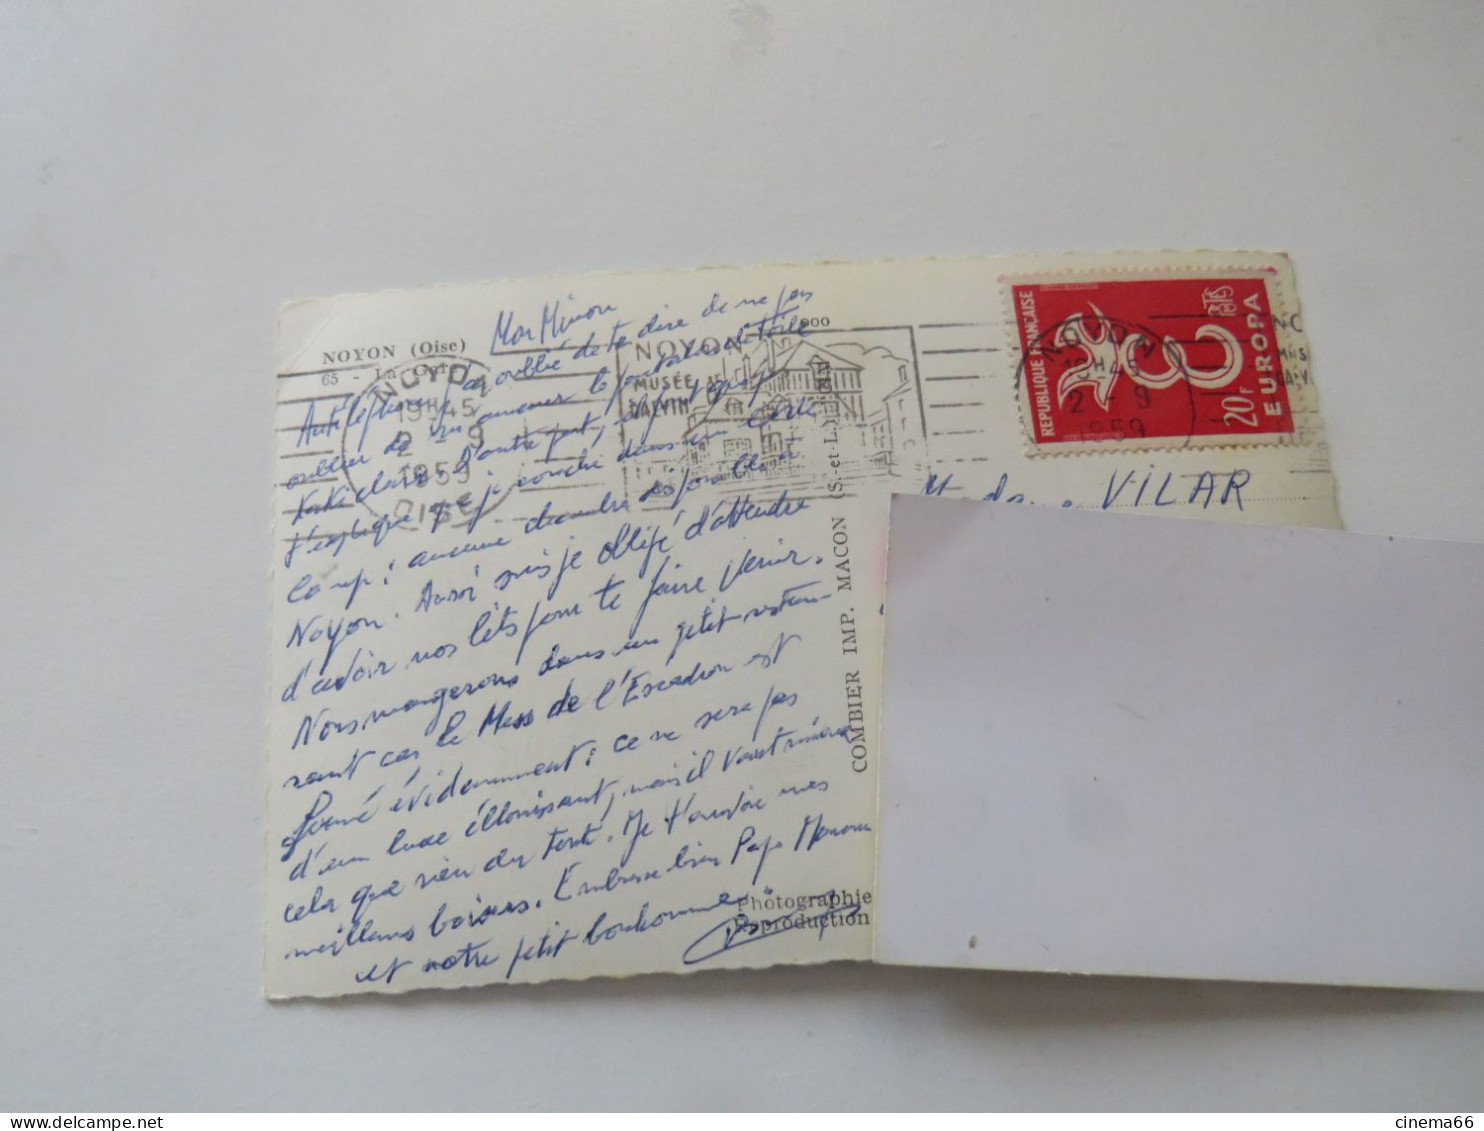 NOYON (Oise)
65 - La Gare
Mon Minou
Au téléphone j'ai oublié de te dire de ne pas
oublier de m'amener le pantalon de toile
kaki clair. D'autre part,
t'explique que je couche dans un
Camp : aucune chambre disponible à
Noyon. Aussi suis-je obligé d'attendre
d'avoir nos lits pour te faire venir.
Nous mangerons dans un petit restau-
rant car le Mess de l'Escadron est
fermé évidemment : ce ne sera pas
d'un luxe éblouissant, mais il vaut mieux
cela que rien du tout. Je t'envoie mes
meilleurs baisers. Embrasse bien Papa Maman
et notre petit bonhomme
NOYON
19H45
2 - 9
1959
OISE
NOYON
MUSÉE
CALVIN
COMBIER IMP. MACON (S.-et-L.)
Photographie
Reproduction
REPUBLIQUE FRANÇAISE
POSTES
20F
EUROPA
NOYON
19H45
2 - 9
1959
Madame VILAR
cinema66